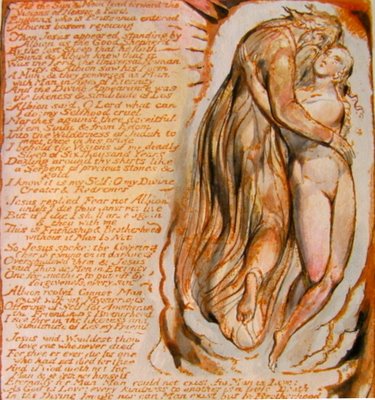 As the Sun & Moon lead forward the
Visions of Heaven & Earth
England who is Brittannia entered
Albions bosom rejoicing
Then Jesus appeared standing by
Albion as the Good Shepherd
By the lost Sheep that he hath
found & Albion knew that it
Was the Lord the Universal Humanity
& Albion saw his Form
A Man. & they conversed as Man
with Man, in Ages of Eternity
And the Divine Appearance was
the likeness & similitude of Los
Albion said. O Lord what can
I do! my Selfhood cruel
Marches against thee deceitful
from Sinai & from Edom
Into the Wilderness of Judah to
meet thee in his pride
I behold the Visions of my deadly
Sleep of Six Thousand Years
Dazling around thy skirts like
a Serpent of precious stones &
gold
I know it is my Self: O my Divine
Creator & Redeemer
Jesus replied Fear not Albion
unless I die thou canst not live
But if I die I shall arise again
& thou with me
This is Friendship & Brotherhood
without it Man Is Not
So Jesus spoke! the Covering
Cherub coming on in darkness
Overshadowd them & Jesus
said Thus do Men in Eternity
One for another to put off by
forgiveness, every sin
Albion replyd. Cannot Man
exist without Mysterious
Offering of Self for Another
is this Friendship & Brotherhood
I see thee in the likeness &
similitude of Los my Friend
Jesus said. Wouldest thou
love one who never died
For thee or ever die for one
who had not died for thee
And if God dieth not for
Man & giveth not himself
Eternally for Man Man could not exist. for Man is Love:
As God is Love: every kindness to another is a little Death
In the Divine Image nor can Man exist but by Brotherhood